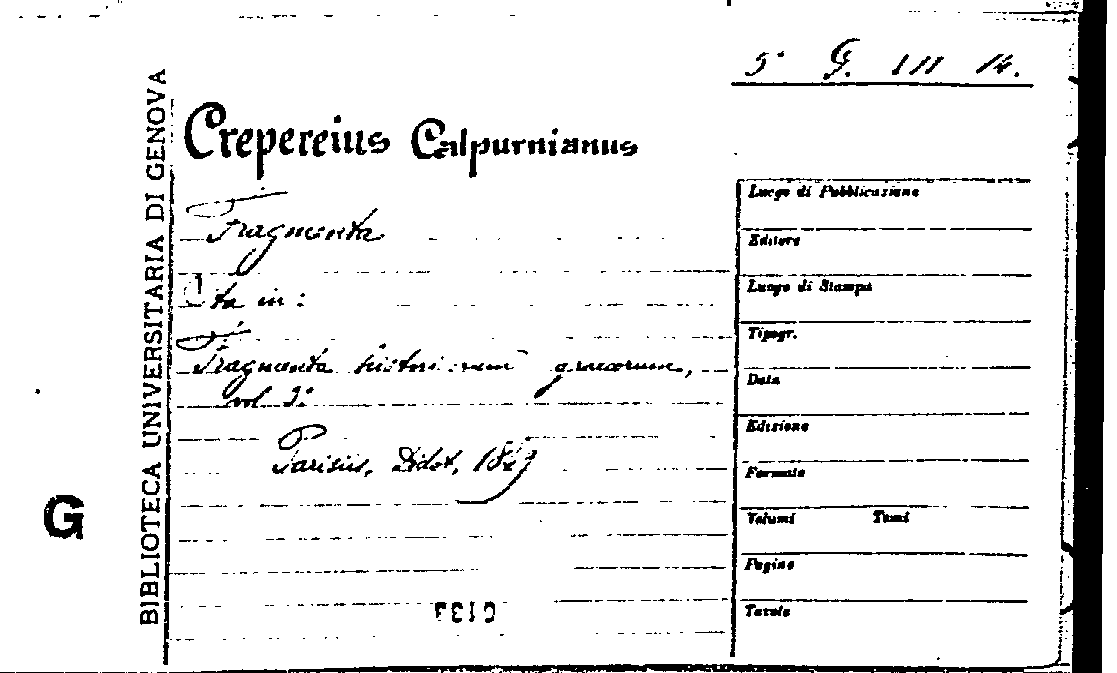 5ª G. III 14.
Crepereius Calpurnianus
Fragmenta
Sta in:
Fragmenta historicorum graecorum,
vol. 3º
Parisiis, Didot, 1849
BIBLIOTECA UNIVERSITARIA DI GENOVA
G
Luogo di Pubblicazione
Editore
Luogo di Stampa
Tipogr.
Data
Edizione
Formato
Volumi Tomi
Pagine
Tavole